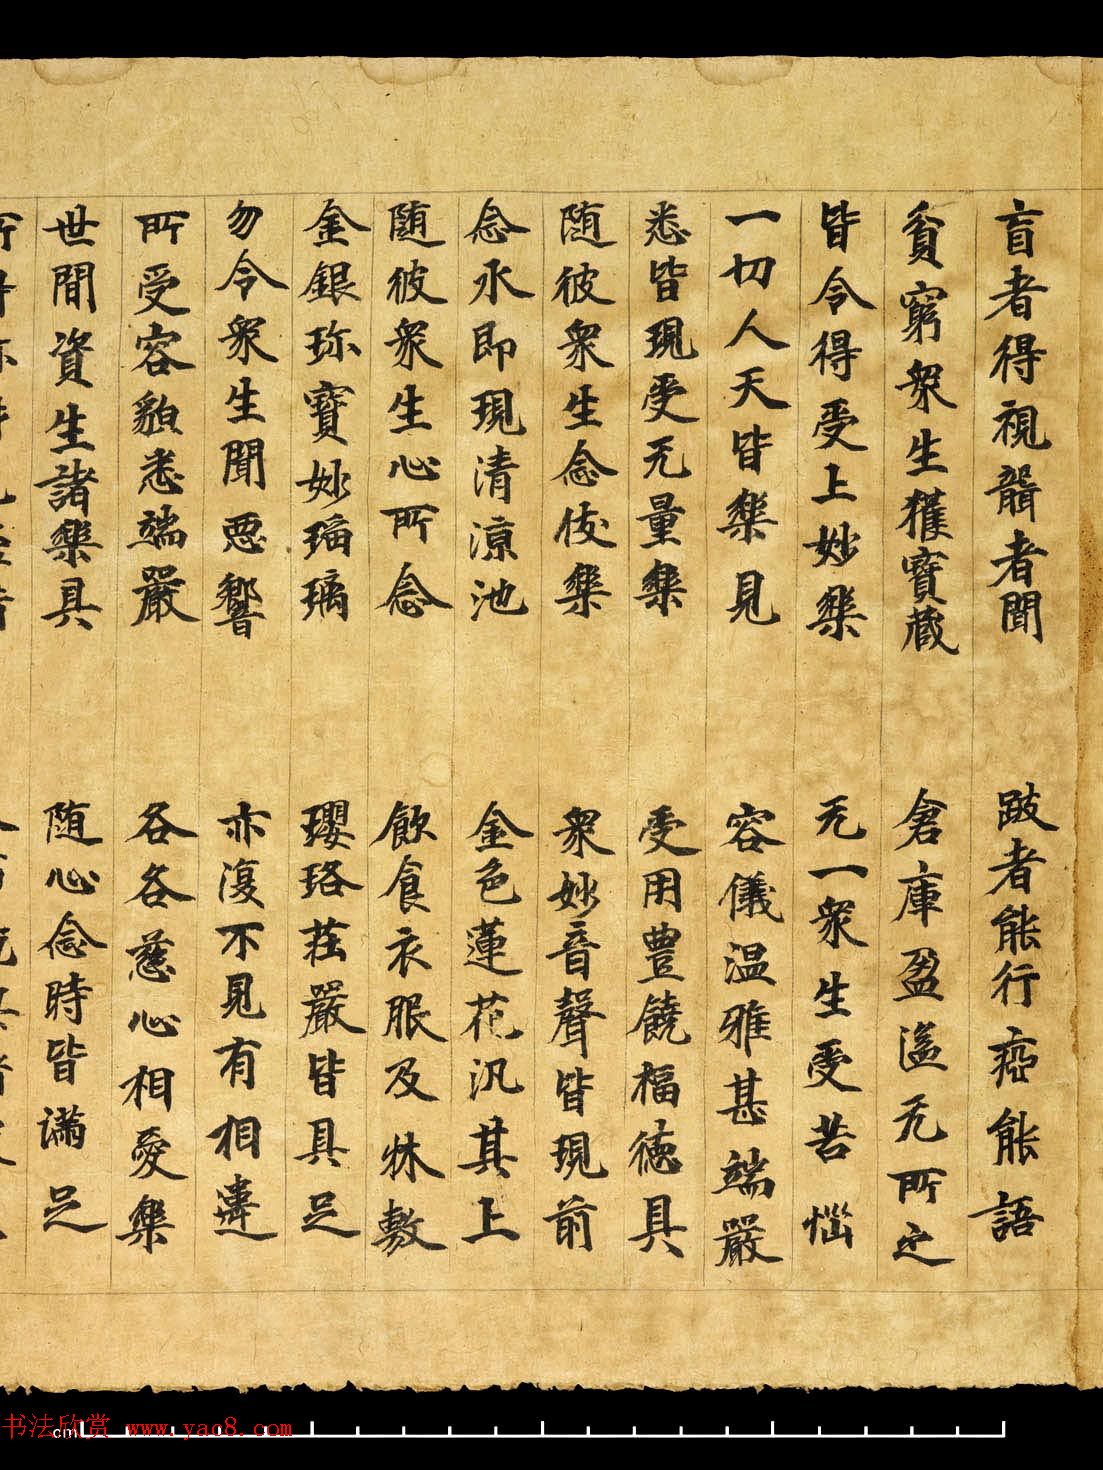 盲者得視聾者聞 跛者能行瘂能語
貧窮衆生獲寶藏 倉庫盈溢无所乏
皆令得受上妙樂 无一衆生受苦惱
一切人天皆樂見 容儀温雅甚端嚴
悉皆現受无量樂 受用豊饒福徳具
随彼衆生念伎樂 衆妙音聲皆現前
念水即現清涼池 金色蓮花汎其上
随彼衆生心所念 飲食衣服及牀敷
金銀珎寶妙瑠璃 瓔珞莊嚴皆具足
勿令衆生聞惡響 亦復不見有相違
所受容貌悉端嚴 各各慈心相愛樂
世間資生諸樂具 随心念時皆满足
书法欣赏 www.yac8.com
cm